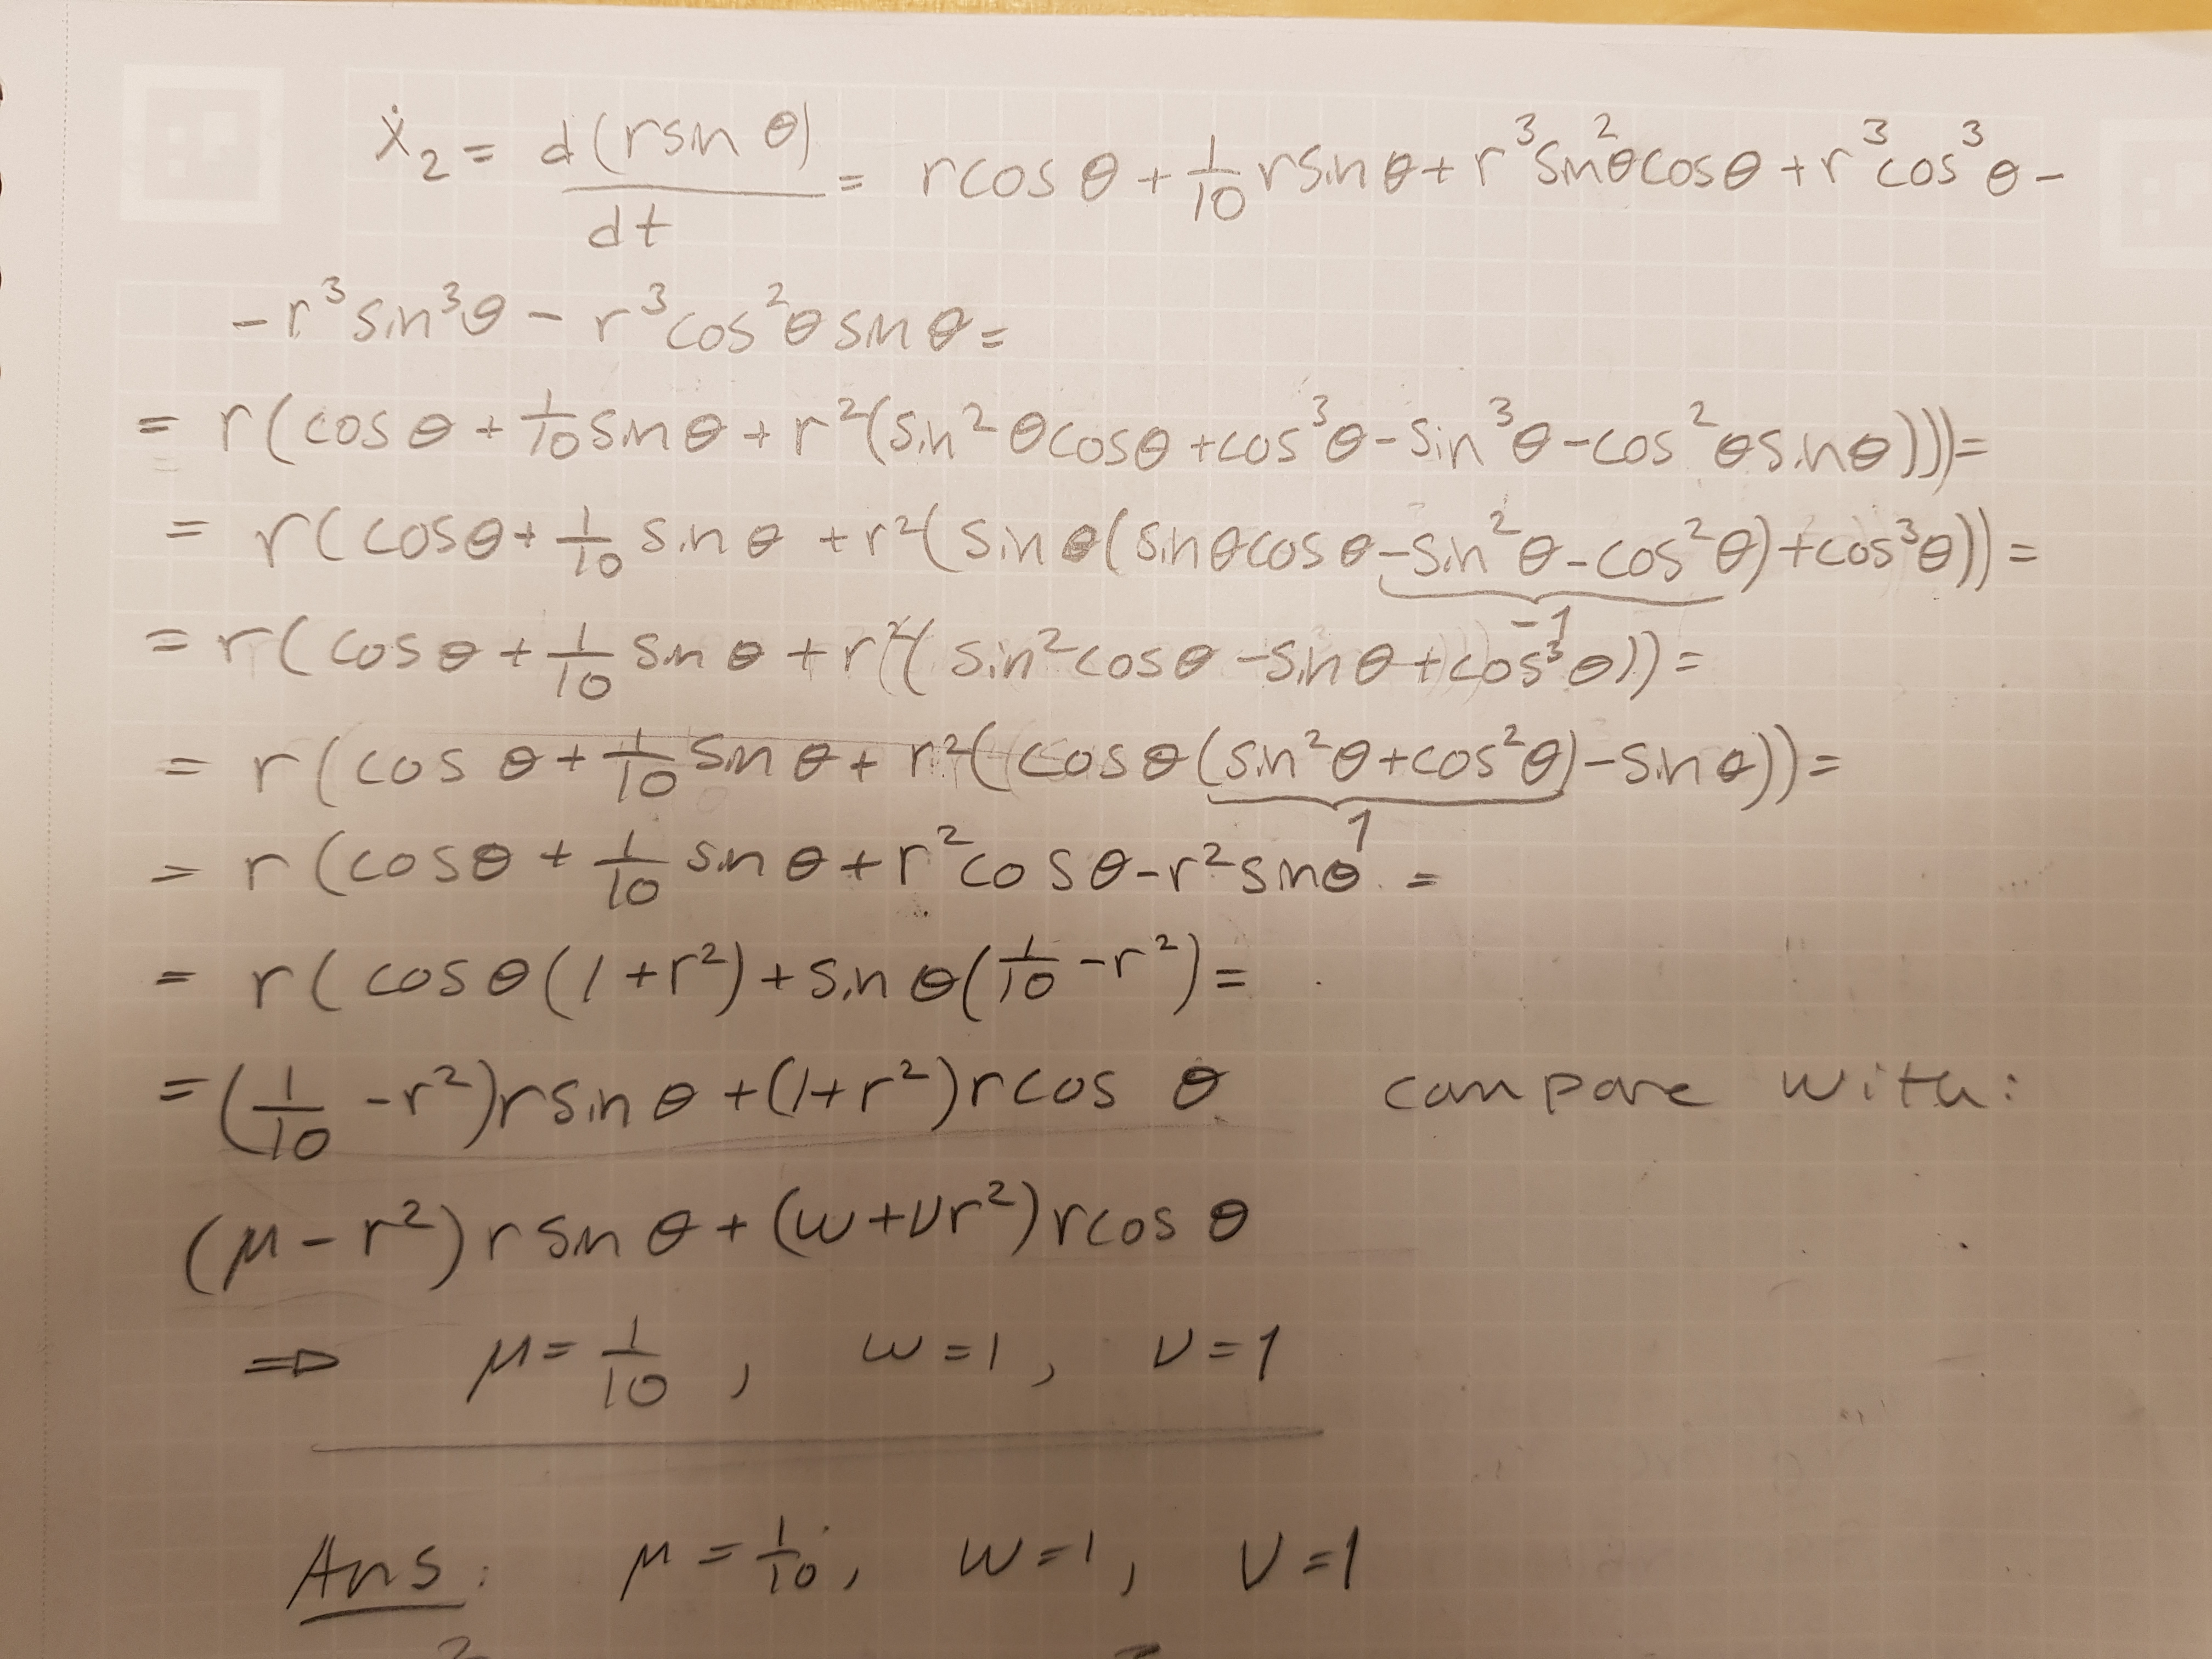 ẋ₂ = d(rsin θ)/dt = rcos θ + 1/10 rsin θ + r³sin²θcosθ + r³cos³θ -
- r³sin³θ - r³cos²θ sin θ =
= r(cos θ + 1/10 sin θ + r²(sin²θcosθ + cos³θ - sin³θ - cos²θsinθ))) =
= r(cosθ + 1/10 sin θ + r²(sin θ(sinθcosθ - sin²θ - cos²θ) + cos³θ)) =
-1
= r(cosθ + 1/10 sin θ + r²(sin²cosθ - sinθ + cos³θ)) =
= r(cos θ + 1/10 sin θ + r²(cosθ(sin²θ + cos²θ) - sinθ)) =
1
= r(cosθ + 1/10 sin θ + r²cosθ - r²sinθ =
= r(cosθ(1 + r²) + sin θ(1/10 - r²) =
= (1/10 - r²)rsin θ + (1 + r²)rcos θ compare with:
(μ - r²)rsin θ + (ω + νr²)rcos θ
⇒ μ = 1/10, ω = 1, ν = 1
Ans: μ = 1/10, ω = 1, ν = 1